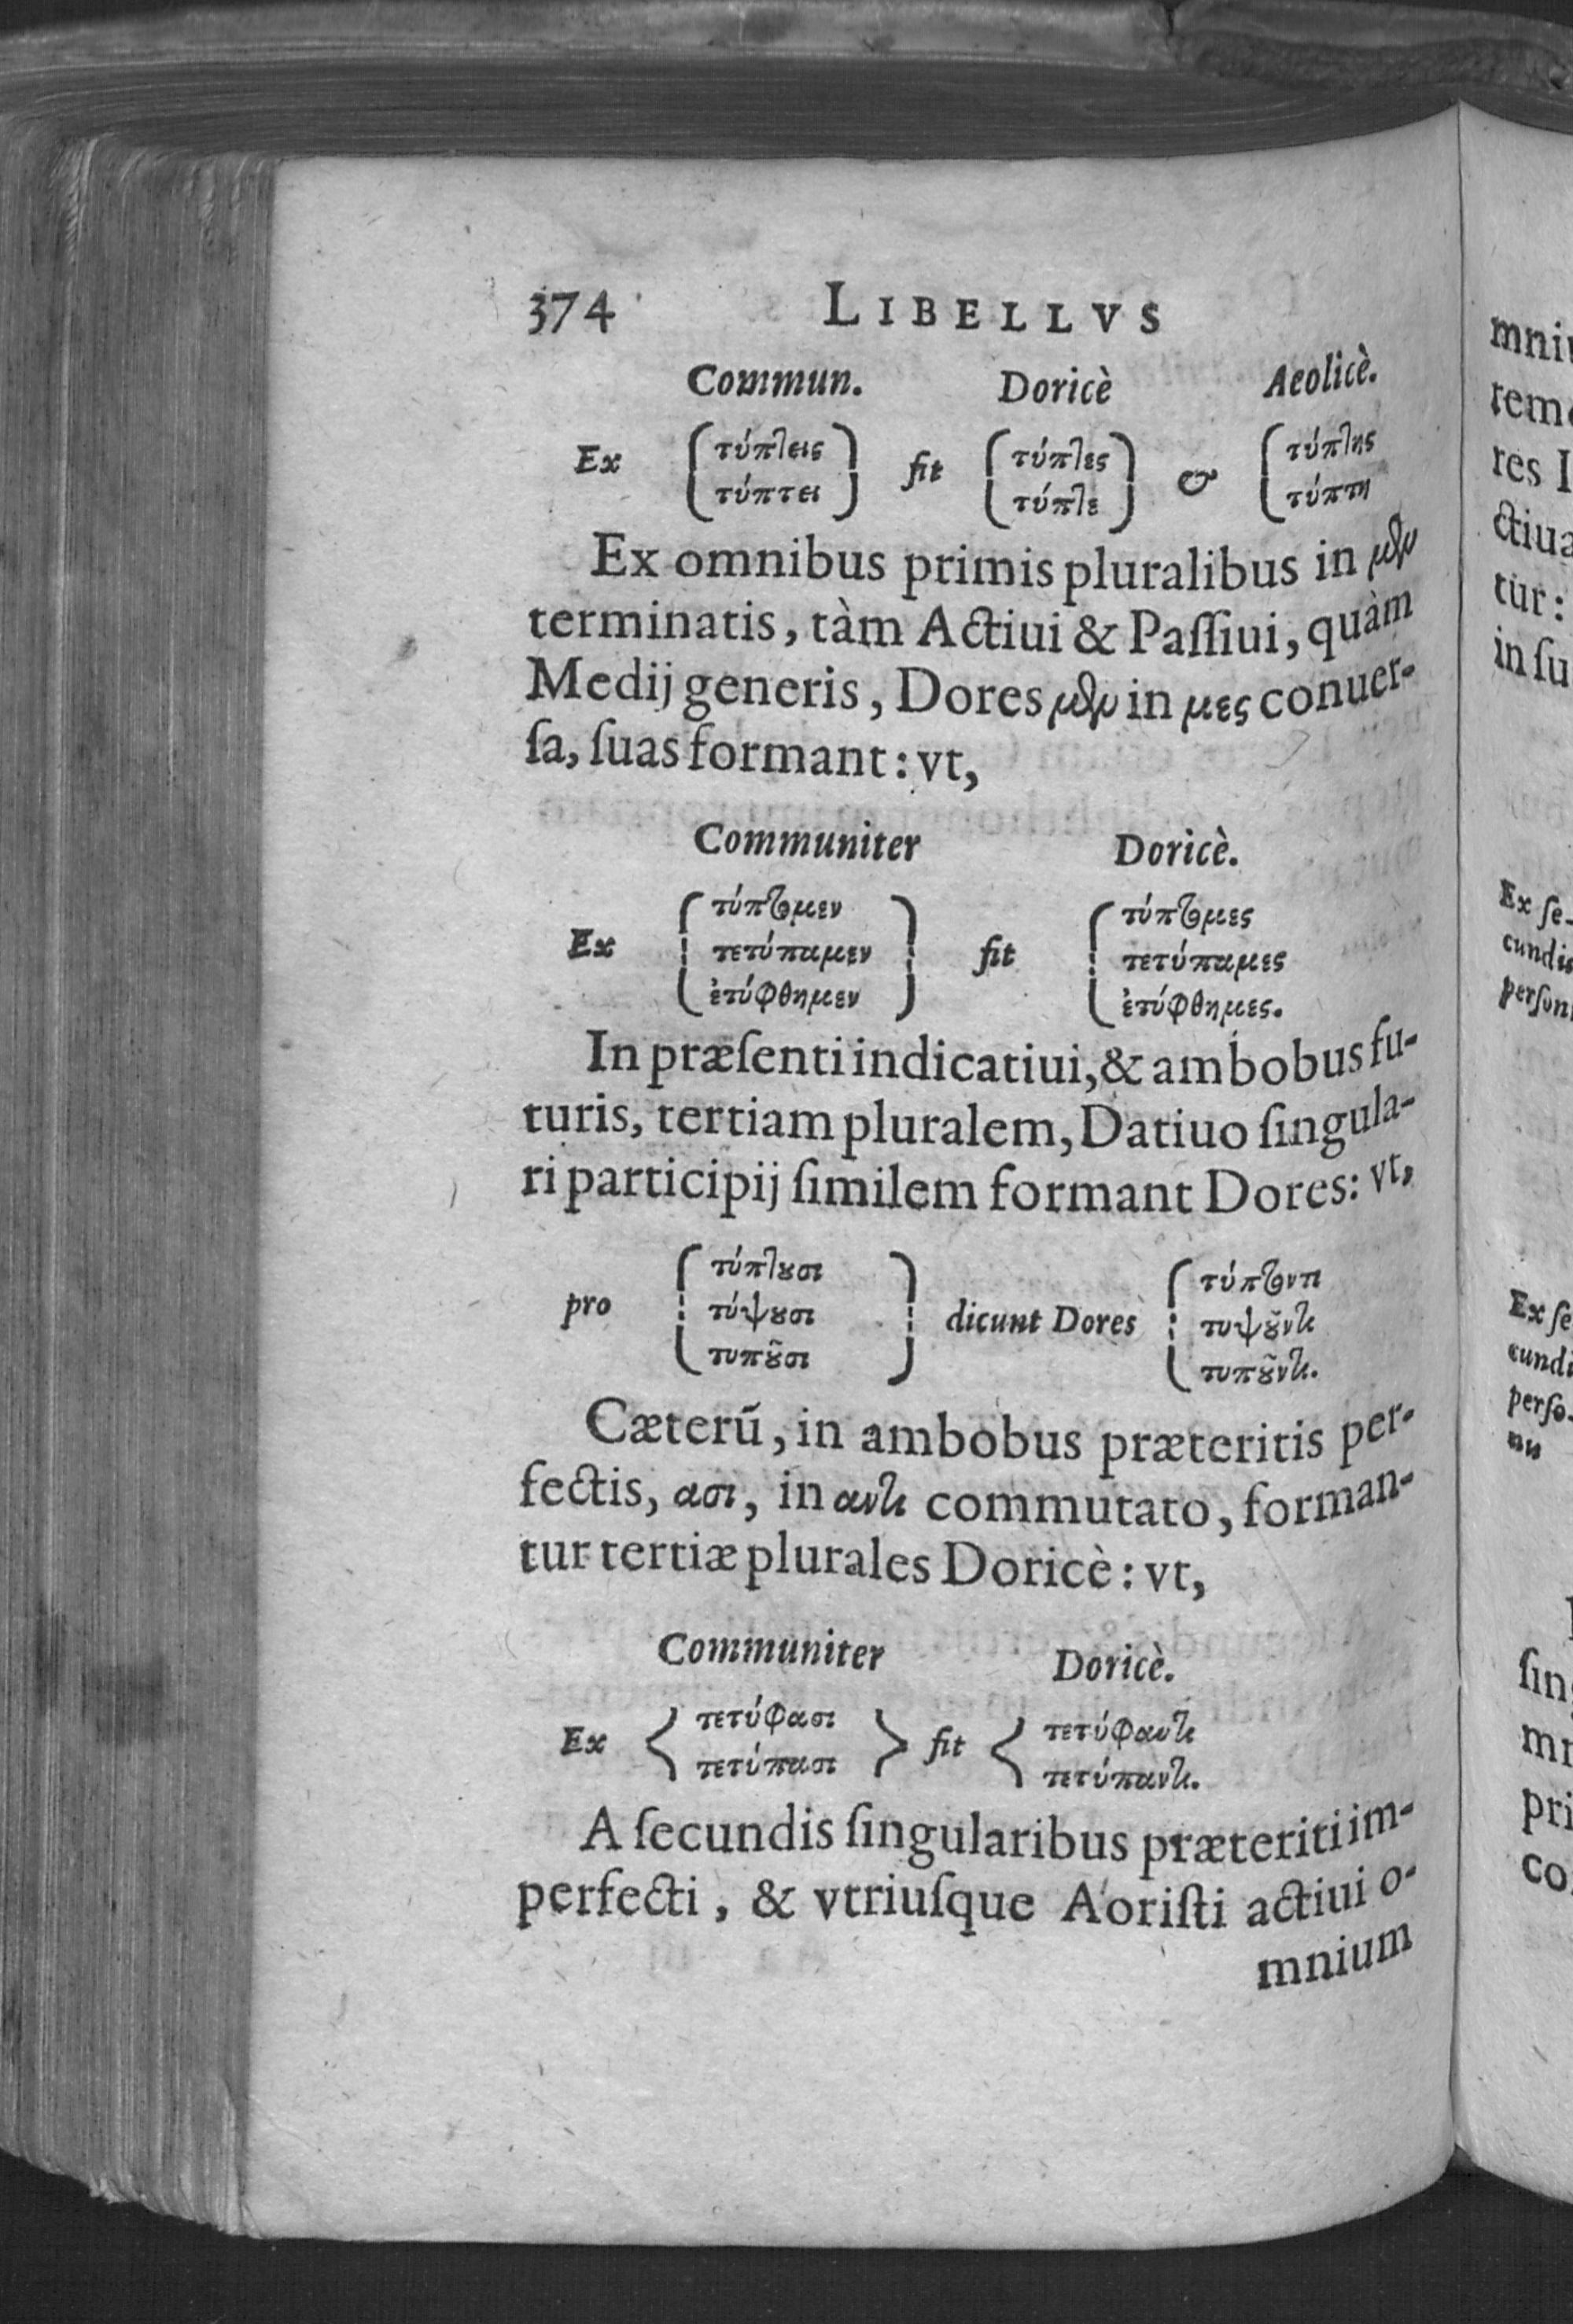 374 LIBELLVS
Commun. Doricè Aeolicè.
τύπτεις τύπτες τύπτης
Ex fit &
τύπτει τύπτε τύπτη
Ex omnibus primis pluralibus in μεν
terminatis, tàm Actiui & Paſſiui, quàm
Medij generis, Dores μεν in μες conuer-
ſa, ſuas formant: vt,
Communiter Doricè.
τύπτομεν τύπτομες
Ex τετύπαμεν fit τετύπαμες
ἐτύφθημεν ἐτύφθημες.
In præſenti indicatiui, & ambobus fu-
turis, tertiam pluralem, Datiuo ſingula-
ri participij ſimilem formant Dores: vt,
τύπτουσι τύπτοντι
pro τύψουσι dicunt Dores τυψοῦντι
τυποῦσι τυποῦντι.
Cæterū, in ambobus præteritis per-
fectis, ασι, in αντι commutato, forman-
tur tertiæ plurales Doricè: vt,
Communiter Doricè.
τετύφασι τετύφαντι
Ex fit
τετύπασι τετύπαντι.
A ſecundis ſingularibus præteriti im-
perfecti, & vtriuſque Aoriſti actiui o-
mnium
mni
rem
res I
ctiua
tur:
in ſu
Ex ſe-
cundis
perſon
Ex ſe
cundi
perſo-
ſin
pri
co